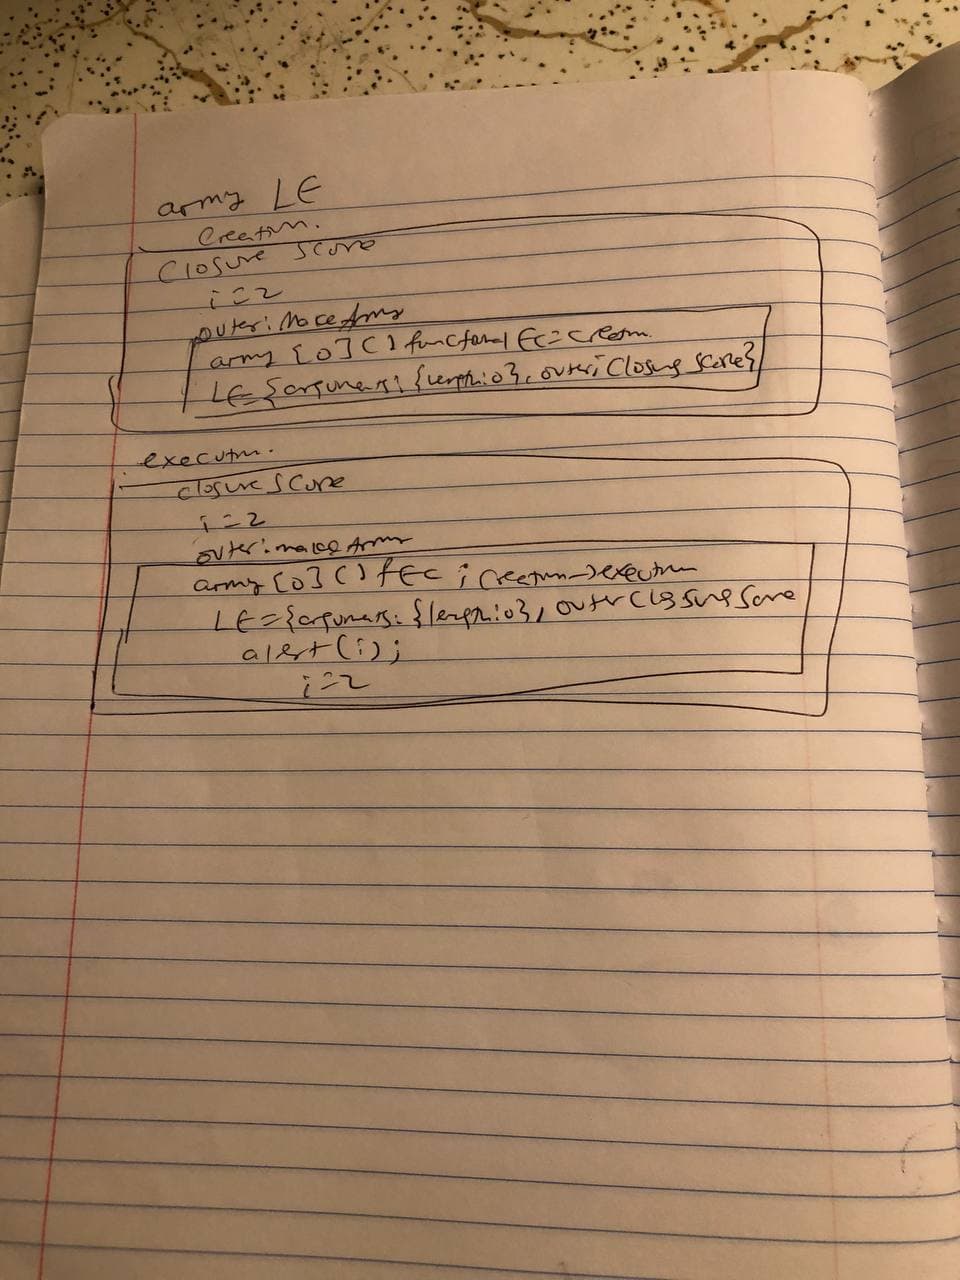 army LE
Creation.
Closure Scope
i = 2
outer: Make Army
army [0] () functional EC = creation
LE = {arguments: {length: 0}, outer: Closing Scope}
execution.
closure scope
i = 2
outer: make Army
army [0] () fEC ; Creation → execution
LE = {arguments: {length: 0}, outer Closing Scope
alert (i);
i = 2